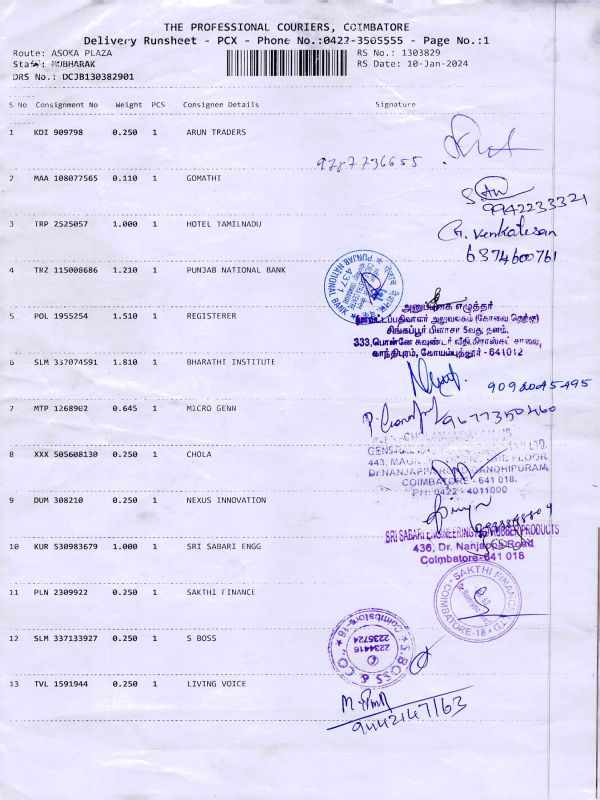 THE PROFESSIONAL COURIERS, COIMBATORE
Delivery Runsheet - PCX - Phone No.:0422-3505555 - Page No.:1
Route: ASOKA PLAZA RS No.: 1303829
Staff: MUBHARAK RS Date: 10-Jan-2024
DRS No.: DCJB130382901
S No Consignment No Weight PCS Consignee Details Signature
1 KDI 909798 0.250 1 ARUN TRADERS
9787736655
2 MAA 108077565 0.110 1 GOMATHI
9942233321
3 TRP 2525057 1.000 1 HOTEL TAMILNADU
G. Venkatesan
637460761
4 TRZ 115008686 1.210 1 PUNJAB NATIONAL BANK
PUNJAB NATIONAL BANK
4371
அனுப்புகை எழுத்தர்
5 POL 1955254 1.510 1 REGISTERER
மாவட்டப்பதிவாளர் அலுவலகம் (கோவை தெற்கு)
சிங்கப்பூர் பிளாசா 5வது தளம்,
333,பொன்னே கவுண்டர் வீதி,கிராஸ்கட் சாலை,
காந்திபுரம், கோயம்புத்தூர் - 641012
6 SLM 337074591 1.810 1 BHARATHI INSTITUTE
9092045495
7 MTP 1268902 0.645 1 MICRO GENN
9677350460
8 XXX 505608130 0.250 1 CHOLA
LTD.
443, FLOOR,
Dr.NANJAPPA GANDHIPURAM,
COIMBATORE - 641 018.
PH: 0422 - 4011000
9 DUM 308210 0.250 1 NEXUS INNOVATION
SRI SABARI ENGINEERING & RUBBER PRODUCTS
10 KUR 530983679 1.000 1 SRI SABARI ENGG
436, Dr. Nanjappa Road
Coimbatore-641 018
11 PLN 2309922 0.250 1 SAKTHI FINANCE
SAKTHI FINANCE LTD
COIMBATORE-18
12 SLM 337133927 0.250 1 S BOSS
S.BOSS & CO
Coimbatore-18
2234416
2235724
13 TVL 1591944 0.250 1 LIVING VOICE
9442147163